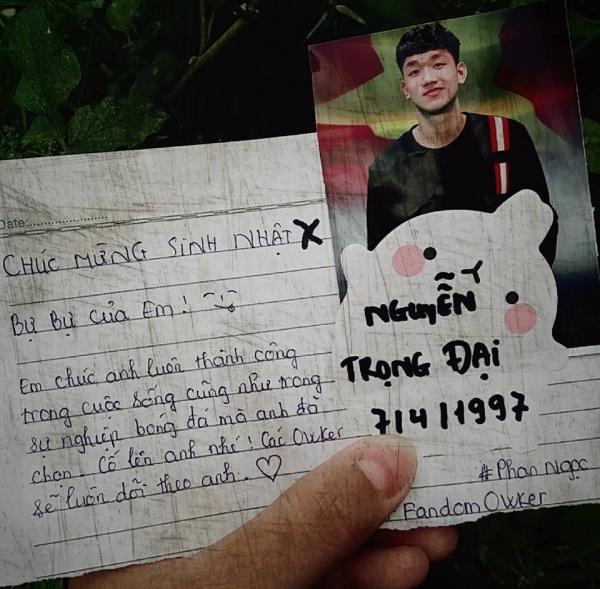 Date:
CHÚC MỪNG SINH NHẬT X
Bự Bự của Em!
Em chúc anh luôn thành công
trong cuộc sống cũng như trong
sự nghiệp bóng đá mà anh đã
chọn. Cố lên anh nhé! Các Owker
sẽ luôn dõi theo anh. ♡
NGUYỄN
TRỌNG ĐẠI
7/4/1997
#Phan Ngọc
Fandom Owker